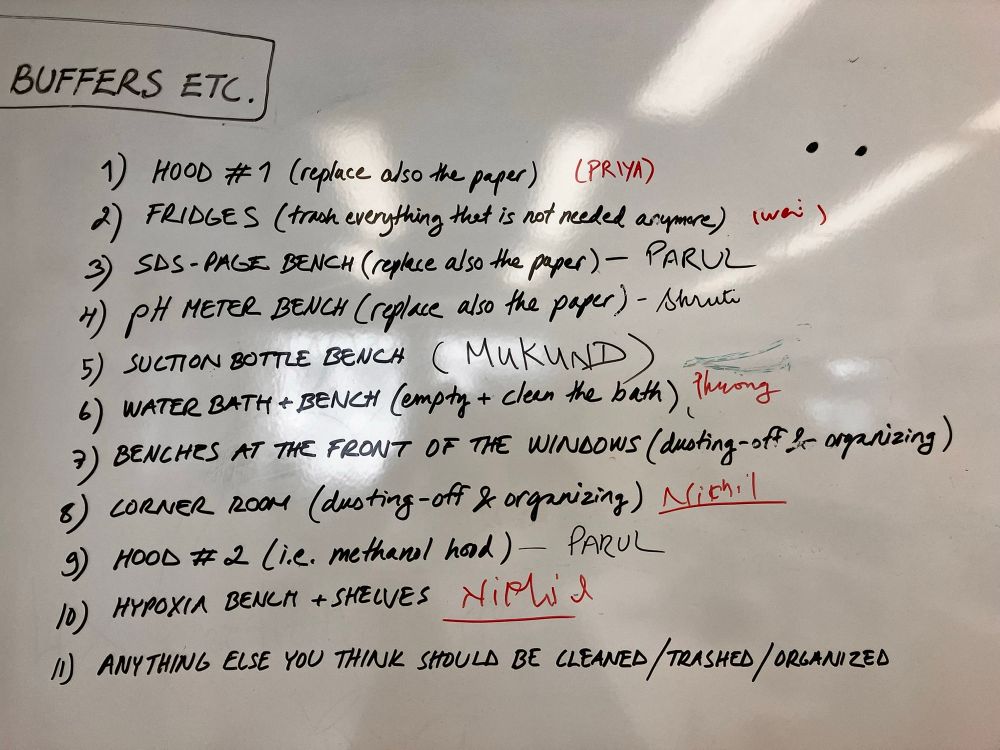 BUFFERS ETC.
1) HOOD #1 (replace also the paper) (PRIYA)
2) FRIDGES (trash everything that is not needed anymore) (wei)
3) SDS-PAGE BENCH (replace also the paper) — PARUL
4) pH METER BENCH (replace also the paper) - Shruti
5) SUCTION BOTTLE BENCH (MUKUND)
6) WATER BATH + BENCH (empty + clean the bath) Phuong
7) BENCHES AT THE FRONT OF THE WINDOWS (dusting-off & organizing)
8) CORNER ROOM (dusting-off & organizing) Nikhil
9) HOOD #2 (i.e. methanol hood) — PARUL
10) HYPOXIA BENCH + SHELVES Nikhil
11) ANYTHING ELSE YOU THINK SHOULD BE CLEANED/TRASHED/ORGANIZED